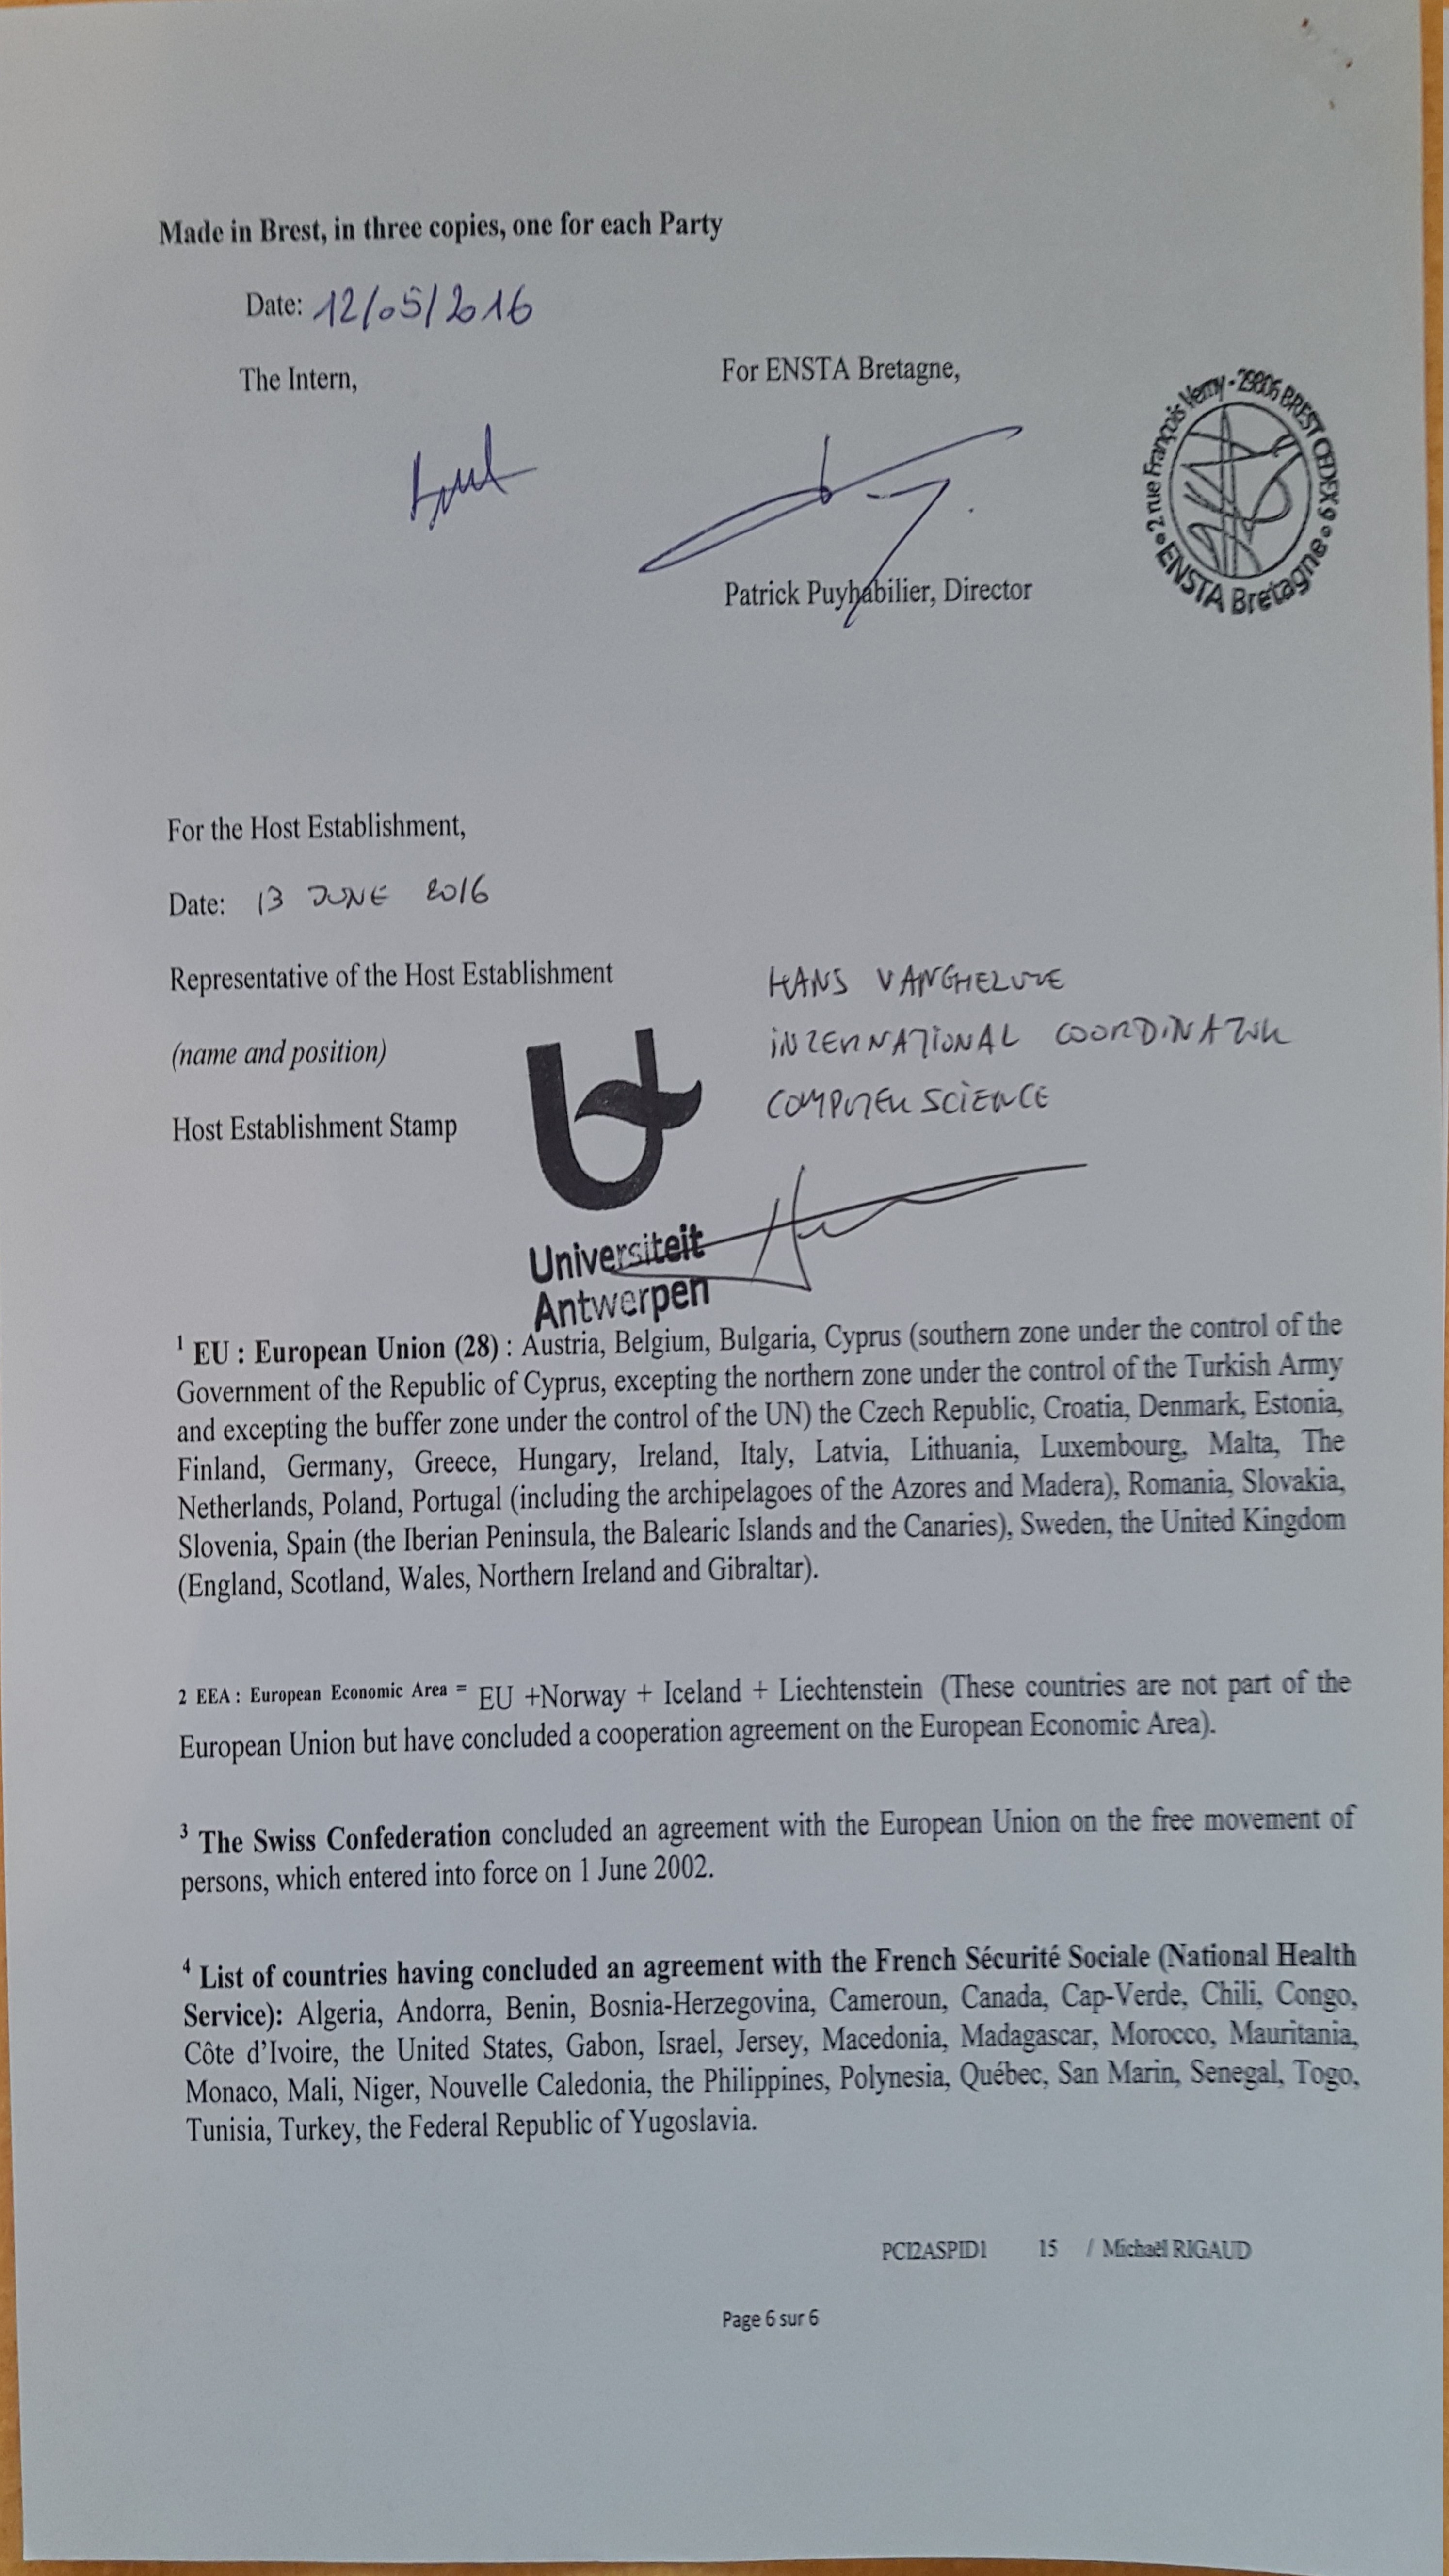 Made in Brest, in three copies, one for each Party
Date: 12/05/2016
The Intern,
For ENSTA Bretagne,
2 rue François Verny - 29806 BREST CEDEX 9
ENSTA Bretagne
Patrick Puyhabilier, Director
For the Host Establishment,
Date: 13 JUNE 2016
Representative of the Host Establishment
HANS VANGHELUWE
(name and position)
INTERNATIONAL COORDINATOR
Host Establishment Stamp
COMPUTER SCIENCE
Universiteit
Antwerpen
1 EU : European Union (28) : Austria, Belgium, Bulgaria, Cyprus (southern zone under the control of the
Government of the Republic of Cyprus, excepting the northern zone under the control of the Turkish Army
and excepting the buffer zone under the control of the UN) the Czech Republic, Croatia, Denmark, Estonia,
Finland, Germany, Greece, Hungary, Ireland, Italy, Latvia, Lithuania, Luxembourg, Malta, The
Netherlands, Poland, Portugal (including the archipelagoes of the Azores and Madera), Romania, Slovakia,
Slovenia, Spain (the Iberian Peninsula, the Balearic Islands and the Canaries), Sweden, the United Kingdom
(England, Scotland, Wales, Northern Ireland and Gibraltar).
2 EEA : European Economic Area = EU +Norway + Iceland + Liechtenstein (These countries are not part of the
European Union but have concluded a cooperation agreement on the European Economic Area).
3 The Swiss Confederation concluded an agreement with the European Union on the free movement of
persons, which entered into force on 1 June 2002.
4 List of countries having concluded an agreement with the French Sécurité Sociale (National Health
Service): Algeria, Andorra, Benin, Bosnia-Herzegovina, Cameroun, Canada, Cap-Verde, Chili, Congo,
Côte d'Ivoire, the United States, Gabon, Israel, Jersey, Macedonia, Madagascar, Morocco, Mauritania,
Monaco, Mali, Niger, Nouvelle Caledonia, the Philippines, Polynesia, Québec, San Marin, Senegal, Togo,
Tunisia, Turkey, the Federal Republic of Yugoslavia.
PCI2ASPID1 15 / Michaël RIGAUD
Page 6 sur 6